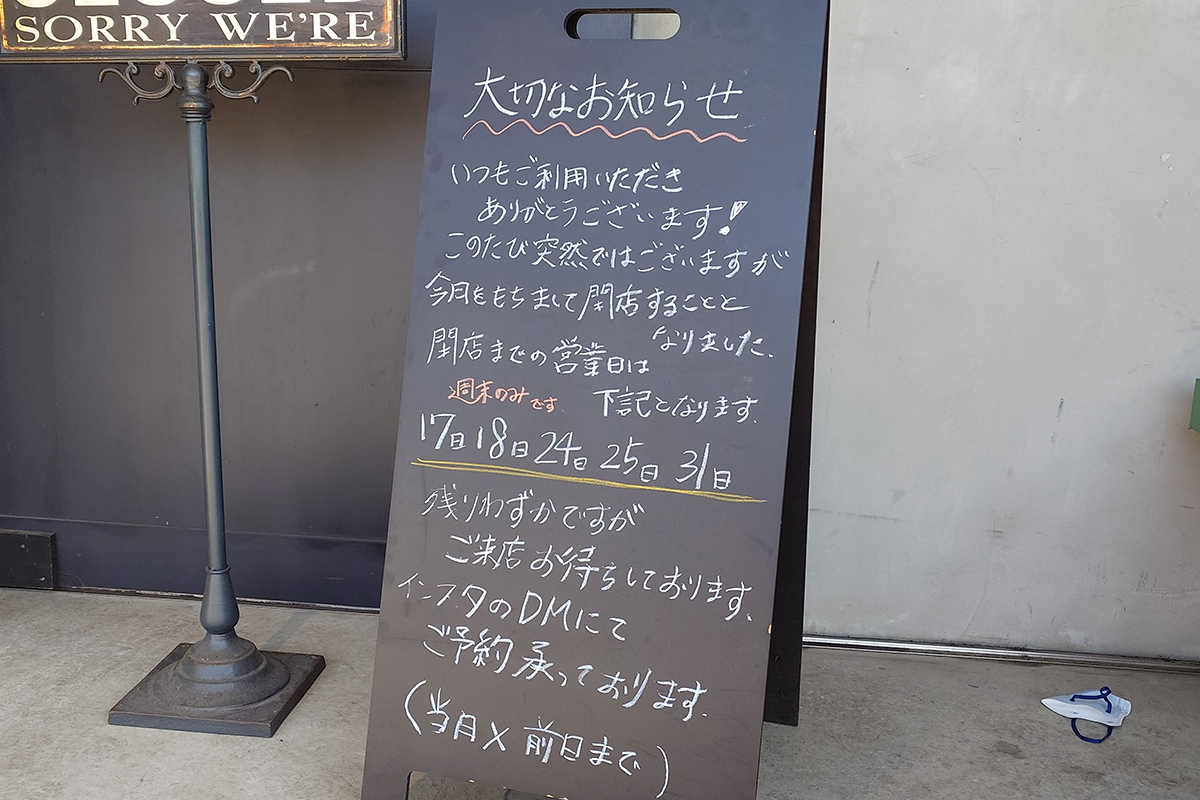 SORRY WE'RE
大切なお知らせ
いつもご利用いただき
ありがとうございます!
このたび突然ではございますが
今月をもちまして閉店することと
なりました。
閉店までの営業日は
下記となります。
週末のみです。
17日 18日 24日 25日 31日
残りわずかですが
ご来店お待ちしております。
インスタのDMにて
ご予約承っております。
(当日× 前日まで)